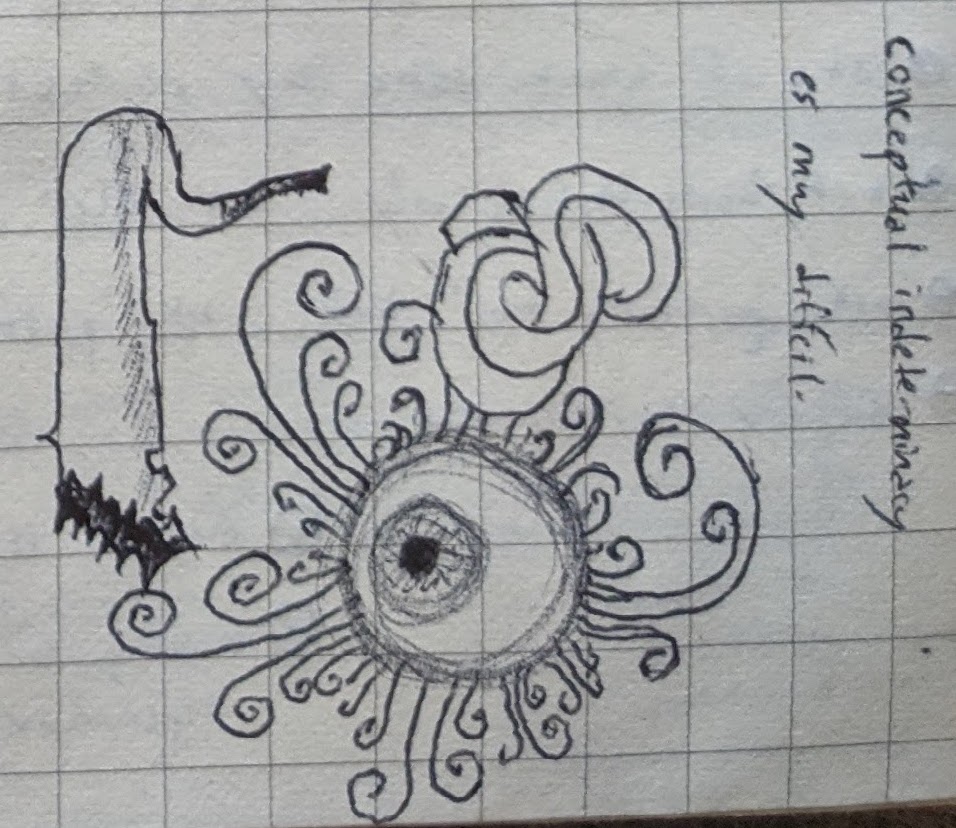 conceptual indeterminacy
es muy difícil.